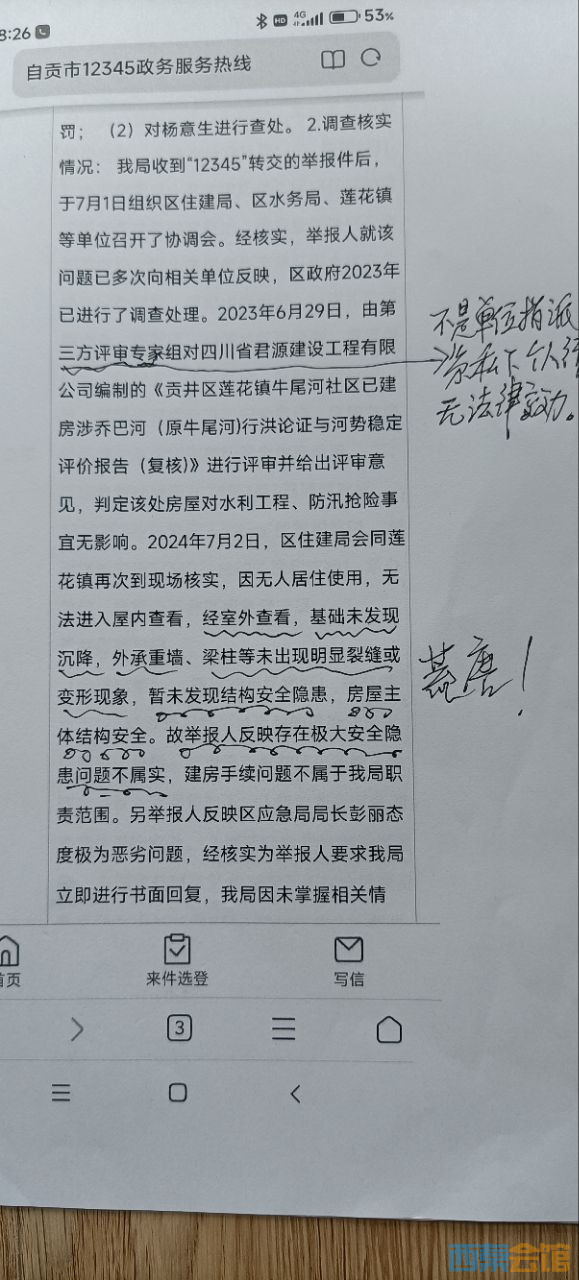 8:26 HD 4G 53%
自贡市12345政务服务热线
罚；（2）对杨意生进行查处。 2.调查核实
情况： 我局收到“12345”转交的举报件后，
于7月1日组织区住建局、区水务局、莲花镇
等单位召开了协调会。经核实，举报人就该
问题已多次向相关单位反映，区政府2023年
已进行了调查处理。2023年6月29日，由第
三方评审专家组对四川省君源建设工程有限
公司编制的《贡井区莲花镇牛尾河社区已建
房涉乔巴河（原牛尾河)行洪论证与河势稳定
评价报告（复核)》进行评审并给出评审意
见，判定该处房屋对水利工程、防汛抢险事
宜无影响。2024年7月2日，区住建局会同莲
花镇再次到现场核实，因无人居住使用，无
法进入屋内查看，经室外查看，基础未发现
沉降，外承重墙、梁柱等未出现明显裂缝或
变形现象，暂未发现结构安全隐患，房屋主
体结构安全。故举报人反映存在极大安全隐
患问题不属实，建房手续问题不属于我局职
责范围。另举报人反映区应急局局长彭丽态
度极为恶劣问题，经核实为举报人要求我局
立即进行书面回复，我局因未掌握相关情
不是单位指派
私下个人
无法律效力。
荒唐！
首页
来件选登
写信
3
西秦会馆